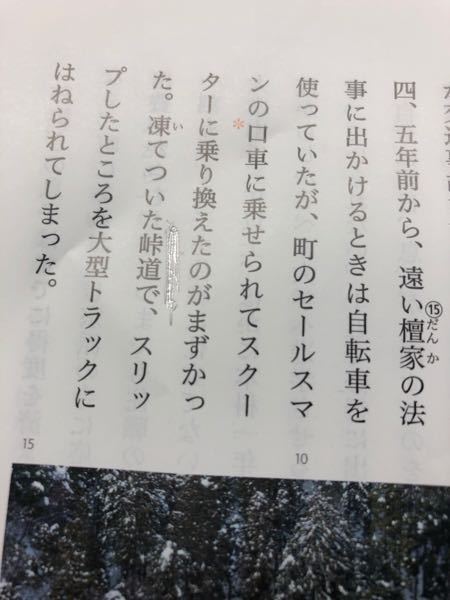 四、五年前から、遠い檀家の法
⑮だんか
事に出かけるときは自転車を
使っていたが、町のセールスマ
10
ンの口車に乗せられてスクー
*
ターに乗り換えたのがまずかっ
た。凍てついた峠道で、スリッ
い
プしたところを大型トラックに
はねられてしまった。
15